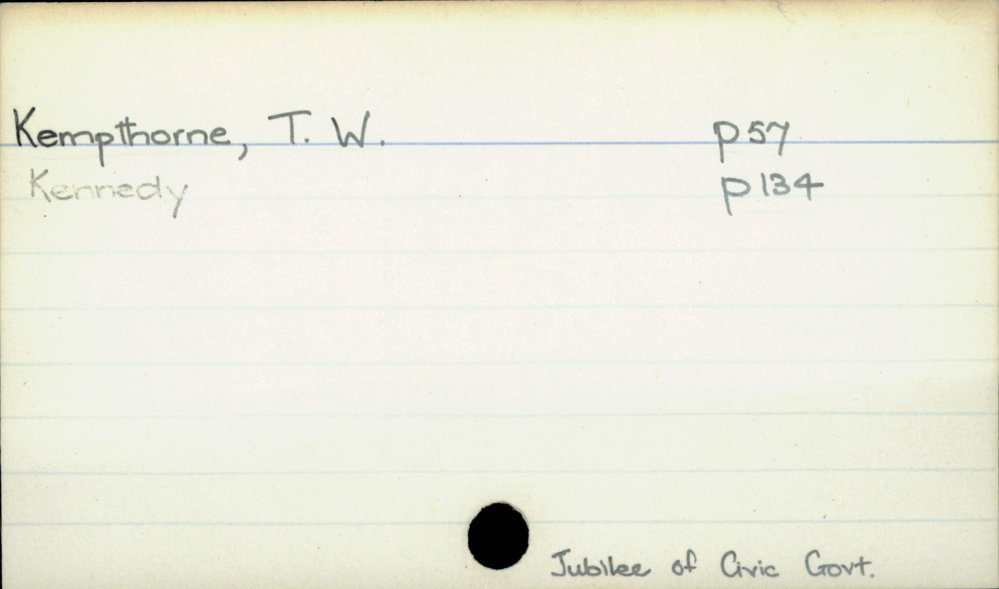 Kempthorne, T. W. p57
Kennedy p134
Jubilee of Civic Govt.